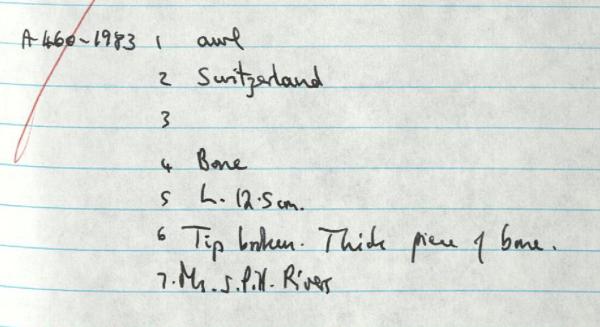 A 460-1983 1 awl
2 Switzerland
3
4 Bone
5 L. 12.5cm.
6 Tip broken. Thick piece of bone.
7. Mr. S.P.H. Rivers